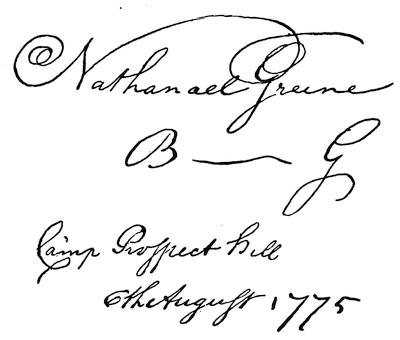 Nathanael Greene
B — G
Camp Prospect hill
6th August 1775